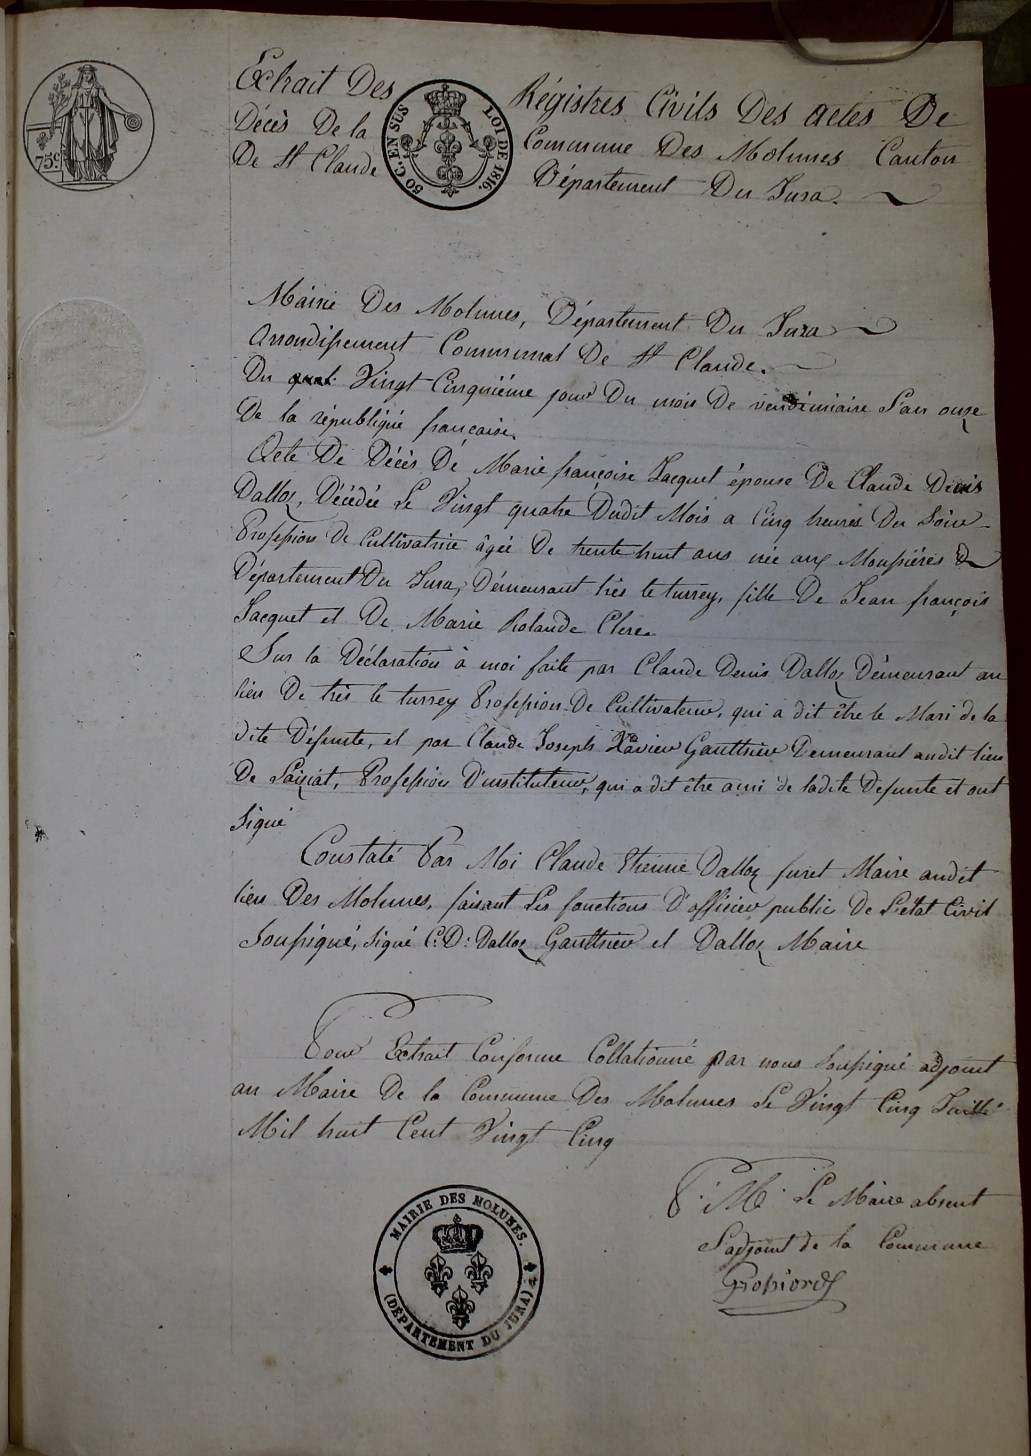 75c
50 C. EN SUS
LOI DE 1816.
Extrait Des Régistres Civils Des actes De
Décès De la Commune Des Molunes Canton
De St Claude Département Du Jura.
Mairie Des Molunes, Département Du Jura
Arrondissement Communal De St Claude.
Du Vingt Cinquiéme jour Du mois De vendémiaire L'an onze
De la républiqué française.
Acte De Décès Dé Marie françoise Jacquet épouse De Claude Denis
Dalloz, Décédée Le Vingt quatre Dudit Mois a Cinq heures Du Soir
Profession De Cultivatrice âgée De trente huit ans née aux Moussières
Département Du Jura, Démeurant très le turrey, fille De Jean françois
Jacquet et De Marie Rolande Clerc.
Sur la Déclaration à moi faite par Claude Denis Dalloz Démeurant au
lieu De très le turrey Profession De Cultivateur, qui a dit être le Mari de la
dite Défunte, et par Claude Joseph Xavier Gauthier Demeurant audit lieu
De Profession D'instituteur, qui a dit être ami de ladite Defunte et ont
Signé
Constaté Par Moi Claude Etienne Dalloz furet Maire audit
lieu Des Molunes, faisant Les fonctions D'officier public De L'état Civil
Soussigné, Signé C: D: Dalloz Gauthier et Dalloz Maire
Pour Extrait Conforme Collationné par nous Soussigné adjoint
au Maire De la Commune Des Molunes Le Vingt Cinq Juillet
Mil huit Cent Vingt Cinq
P. Mr Le Maire absent
L'adjoint de la Commune
MAIRIE DES MOLUNES.
(DÉPARTEMENT DU JURA)